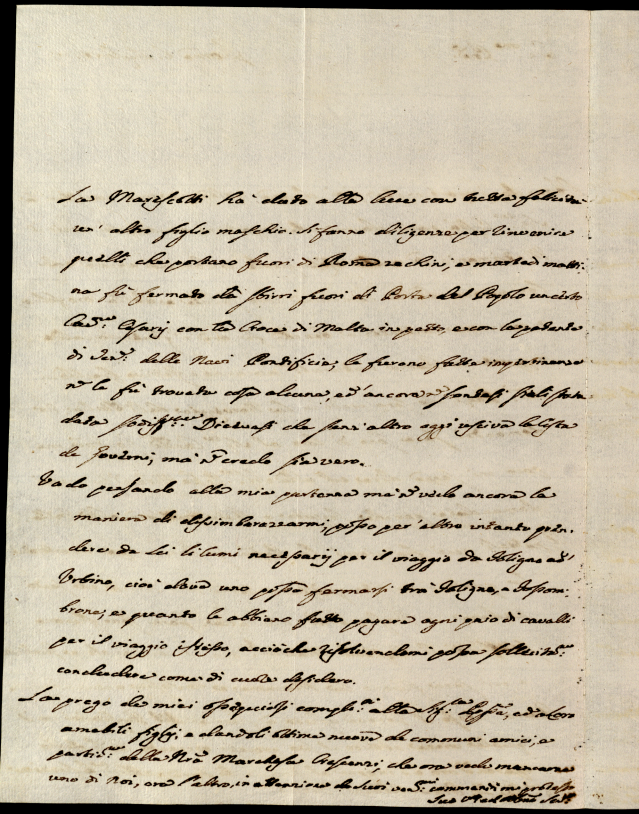 La Marescotti hà dato alla luce con tutta felicità
un' altro figlio maschio. Si fanno diligenze per rinvenire
quelli che portano fuori di Roma zecchini, e martedì matti:
na fù fermato da sbirri fuori di Porta del Popolo un certo
Cav.re Cesarij con la Croce di Malta in petto, e con la patente
di Ten.te delle Navi Pontificie; le furono fatte impertinenze
nè le fù trovata cosa alcuna, ed' ancora
data Dicevasi che senz' altro oggi usciva la lista
de Governi, mà nõ credo sia vero.
Vado pensando alla mia partenza mà nõ vedo ancora la
maniera di disimbarazzarmi, posso per altro intanto pren:
dere da Lei li lumi necessarij per il viaggio da Foligno ad'
Urbino, cioè dove uno possa fermarsi trà Foligno, e Fossom:
brone; e quanto le abbiano fatto pagare ogni paio di cavalli
per il viaggio istesso, acciò che risolvendomi possa sollecitam.te
concludere come di cuore desidero.
La prego de miei ossequiosi complim.ti alla ed a loro
amabili figli; e dandoli ottime nuove de communi amici, e
partic.re della Nrã Marchesa Crescenzi, che ora vede mancarne
uno di Noi, ora l'altro, in attenzione de suoi commandi mi protesto
Suo